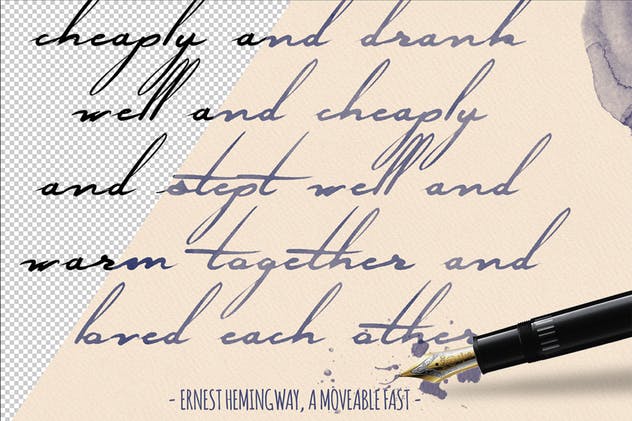 cheaply and drank
well and cheaply
and stept well and
warm together and
loved each other
- ERNEST HEMINGWAY, A MOVEABLE FAST -